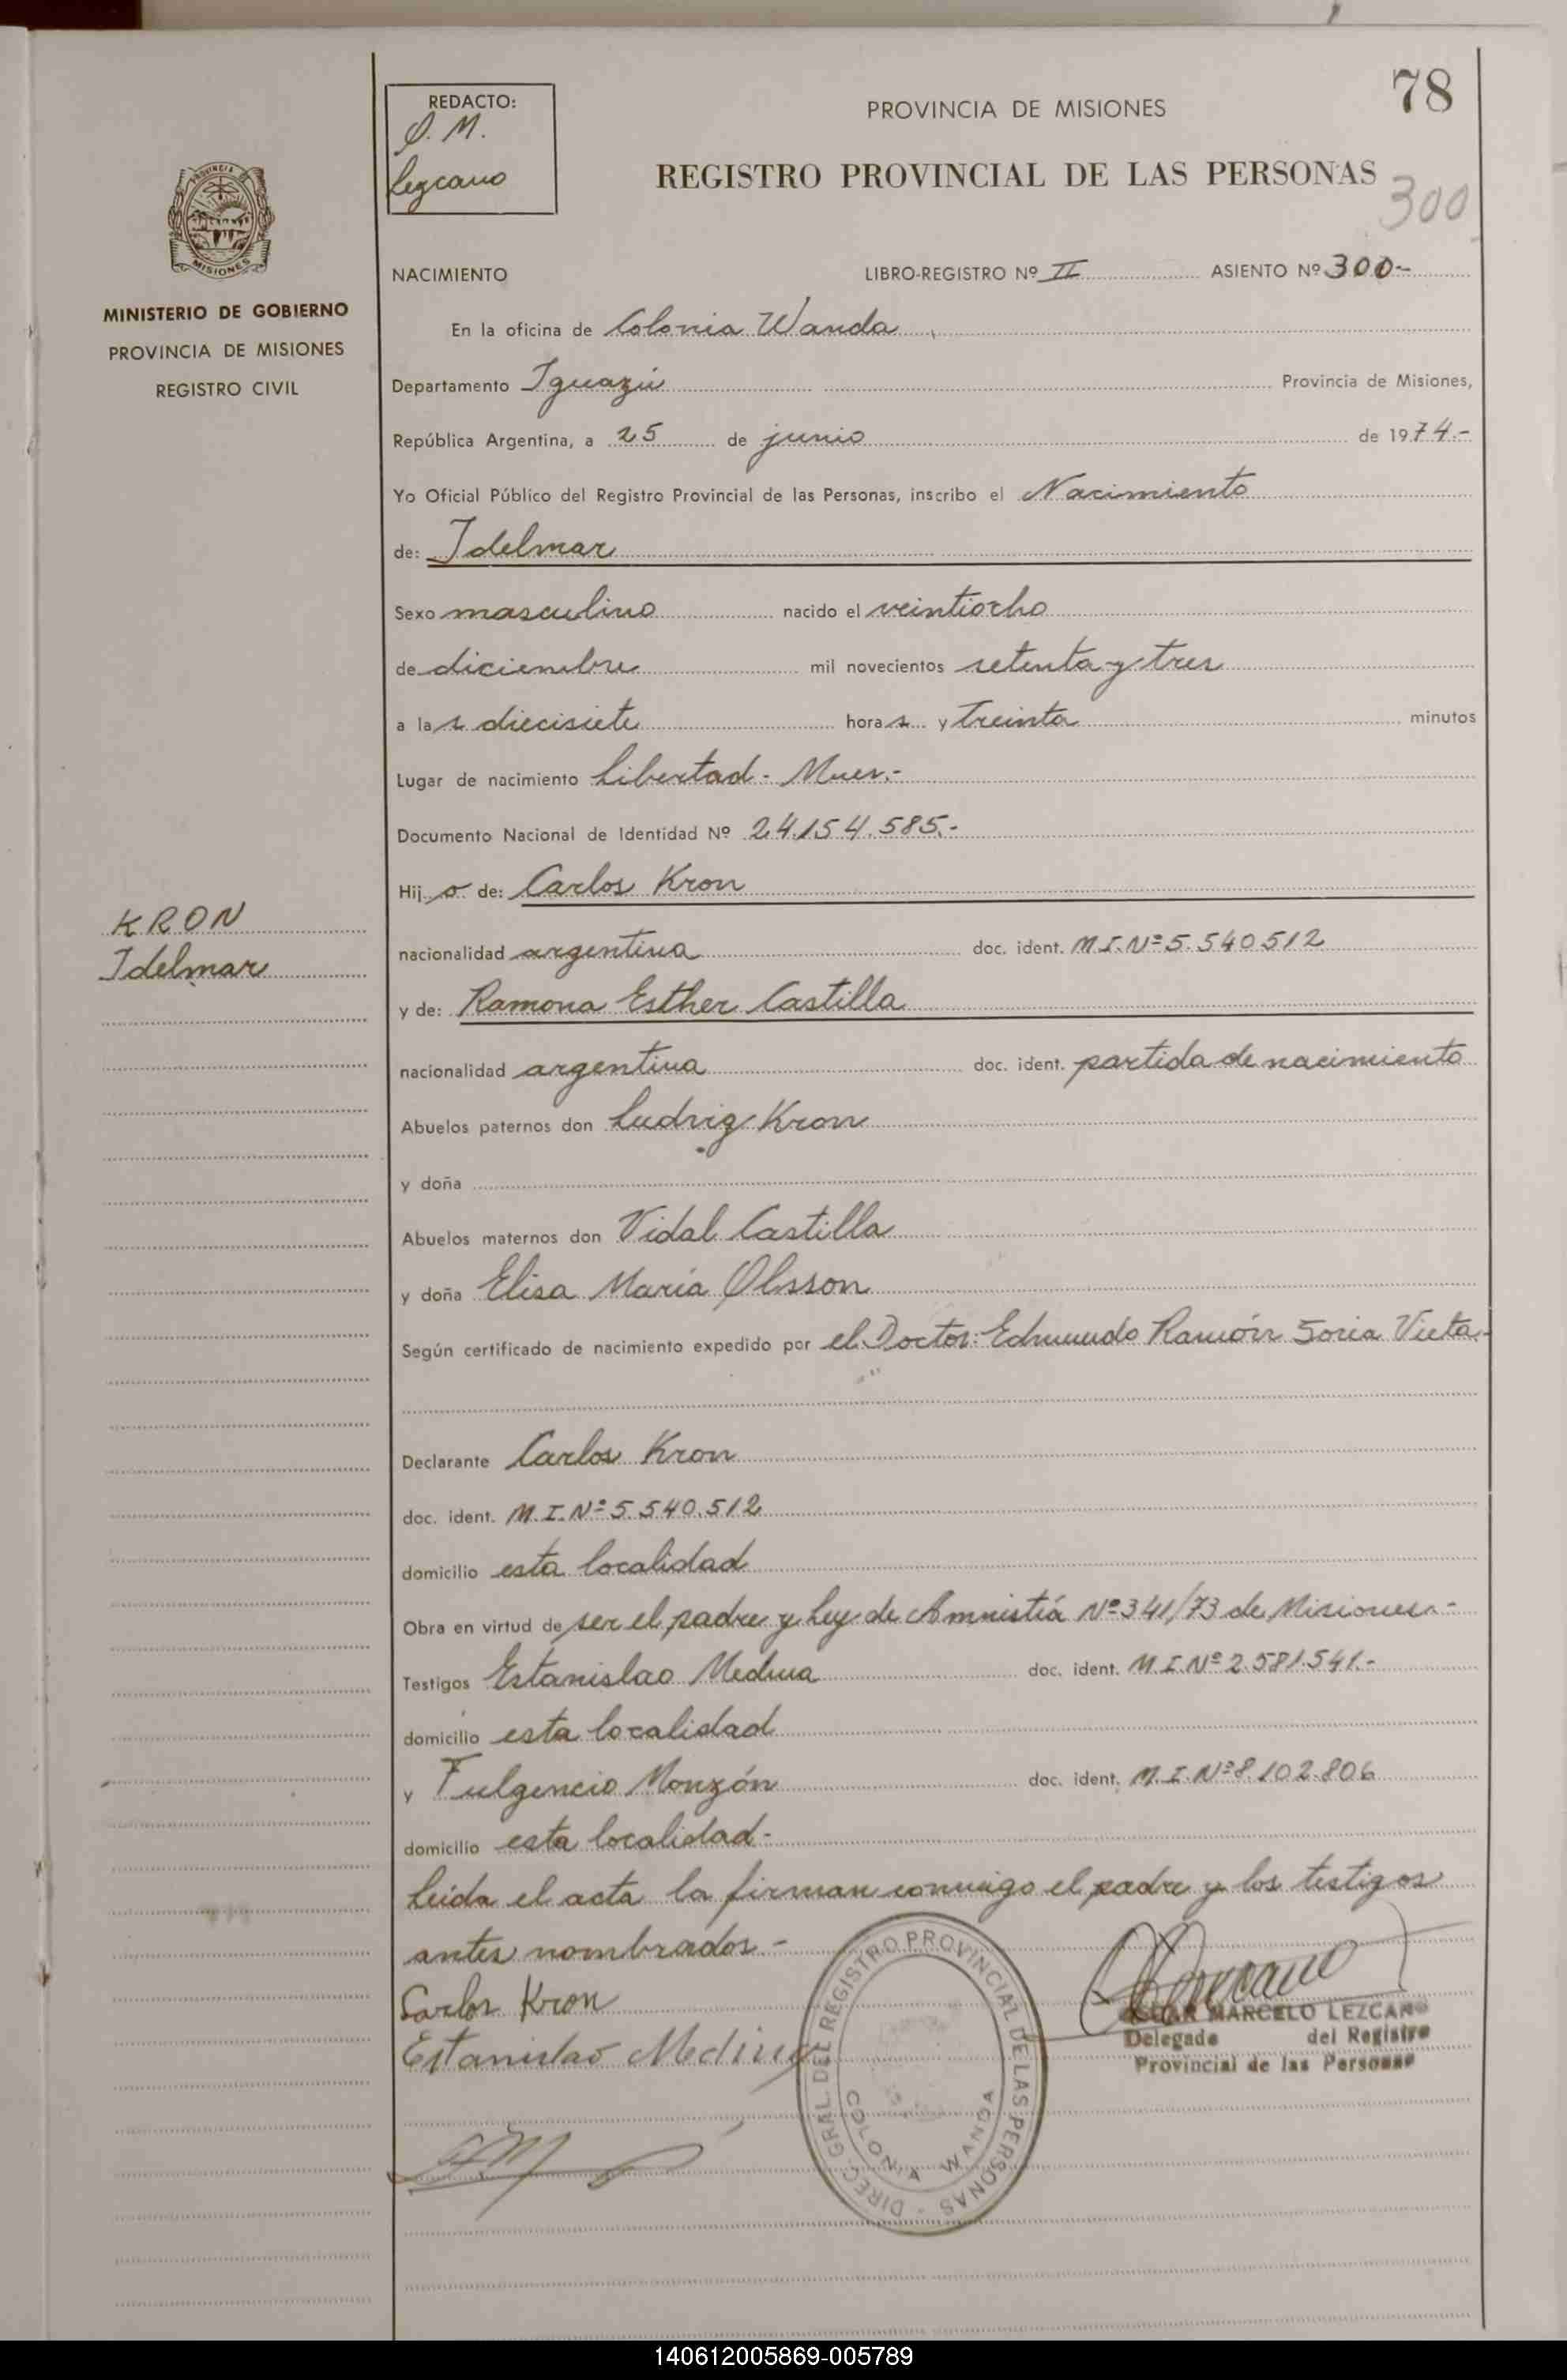 78
REDACTO:
O. M.
Lezcano
PROVINCIA DE MISIONES
REGISTRO PROVINCIAL DE LAS PERSONAS
300
PROVINCIA
MISIONES
MINISTERIO DE GOBIERNO
PROVINCIA DE MISIONES
REGISTRO CIVIL
NACIMIENTO LIBRO-REGISTRO Nº II ASIENTO Nº 300-
En la oficina de Colonia Wanda
Departamento Iguazú Provincia de Misiones,
República Argentina, a 25 de junio de 1974.-
Yo Oficial Público del Registro Provincial de las Personas, inscribo el Nacimiento
de: Idelmar
Sexo masculino nacido el veintiocho
de diciembre mil novecientos setenta y tres
a las diecisiete horas y treinta minutos
Lugar de nacimiento Libertad - Mnes.-
Documento Nacional de Identidad Nº 24.154.585.-
Hijo de: Carlos Kron
KRON
Idelmar
nacionalidad argentina doc. ident. M.I.Nº 5.540512
y de: Ramona Esther Castilla
nacionalidad argentina doc. ident. partida de nacimiento
Abuelos paternos don Ludvig Kron
y doña
Abuelos maternos don Vidal Castilla
y doña Elisa María Olsson
Según certificado de nacimiento expedido por el Doctor: Edmundo Ramón Soria Vieta.-
Declarante Carlos Kron
doc. ident. M.I.Nº 5.540.512
domicilio esta localidad
Obra en virtud de ser el padre y Ley de Amnistiá Nº 341/73 de Misiones.-
Testigos Estanislao Medina doc. ident. M.I.Nº 2.581.541.-
domicilio esta localidad
y Fulgencio Monzón doc. ident. M.I.Nº 8.102.806
domicilio esta localidad-
Leída el acta la firman conmigo el padre y los testigos
antes nombrados.-
Carlos Kron
Estanislao Medina
DIREC. GRAL. DEL REGISTRO PROVINCIAL DE LAS PERSONAS -
COLONIA WANDA
MARCELO LEZCANO
Delegado del Registro
Provincial de las Personas
140612005869-005789